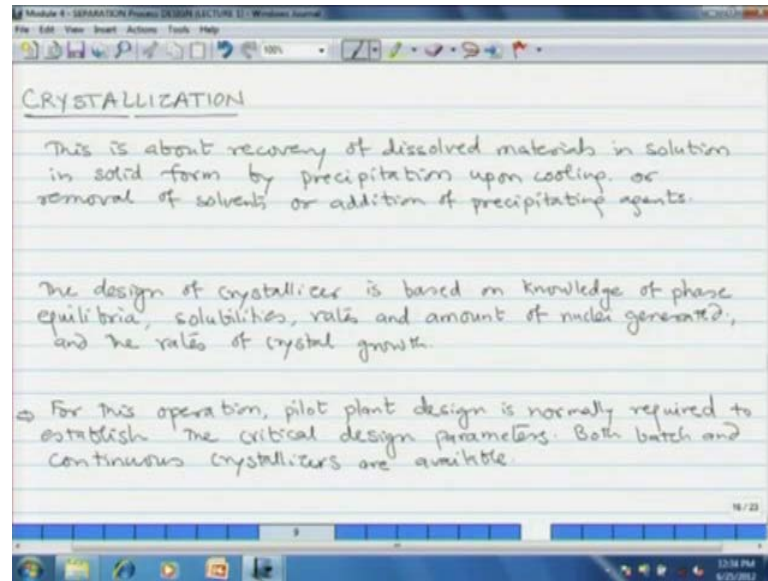 Module 4 - SEPARATION Process DESIGN (LECTURE 1) - Windows Journal
File Edit View Insert Actions Tools Help
100%
CRYSTALLIZATION
This is about recovery of dissolved materials in solution
in solid form by precipitation upon cooling. or
removal of solvents or addition of precipitating agents.
The design of crystallizer is based on knowledge of phase
equilibria, solubilities, rates and amount of nuclei generated,
and the rates of crystal growth.
⇒ For this operation, pilot plant design is normally required to
establish the critical design parameters. Both batch and
continuous crystallizers are available.
16 / 23
9
12:34 PM
6/25/2012